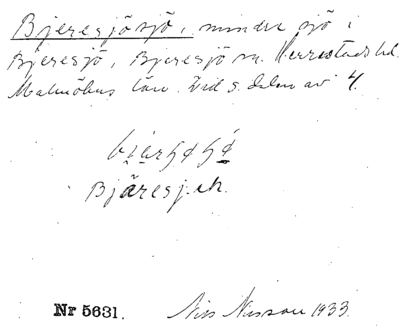 Bjeresjösjö, mindre sjö i
Bjeresjö, Bjeresjö sn. Herrestads hd.
Malmöhus län. Vid s. delen av 4.
Bjäresj. ch.
Nr 5631. Nils Nilsson 1933